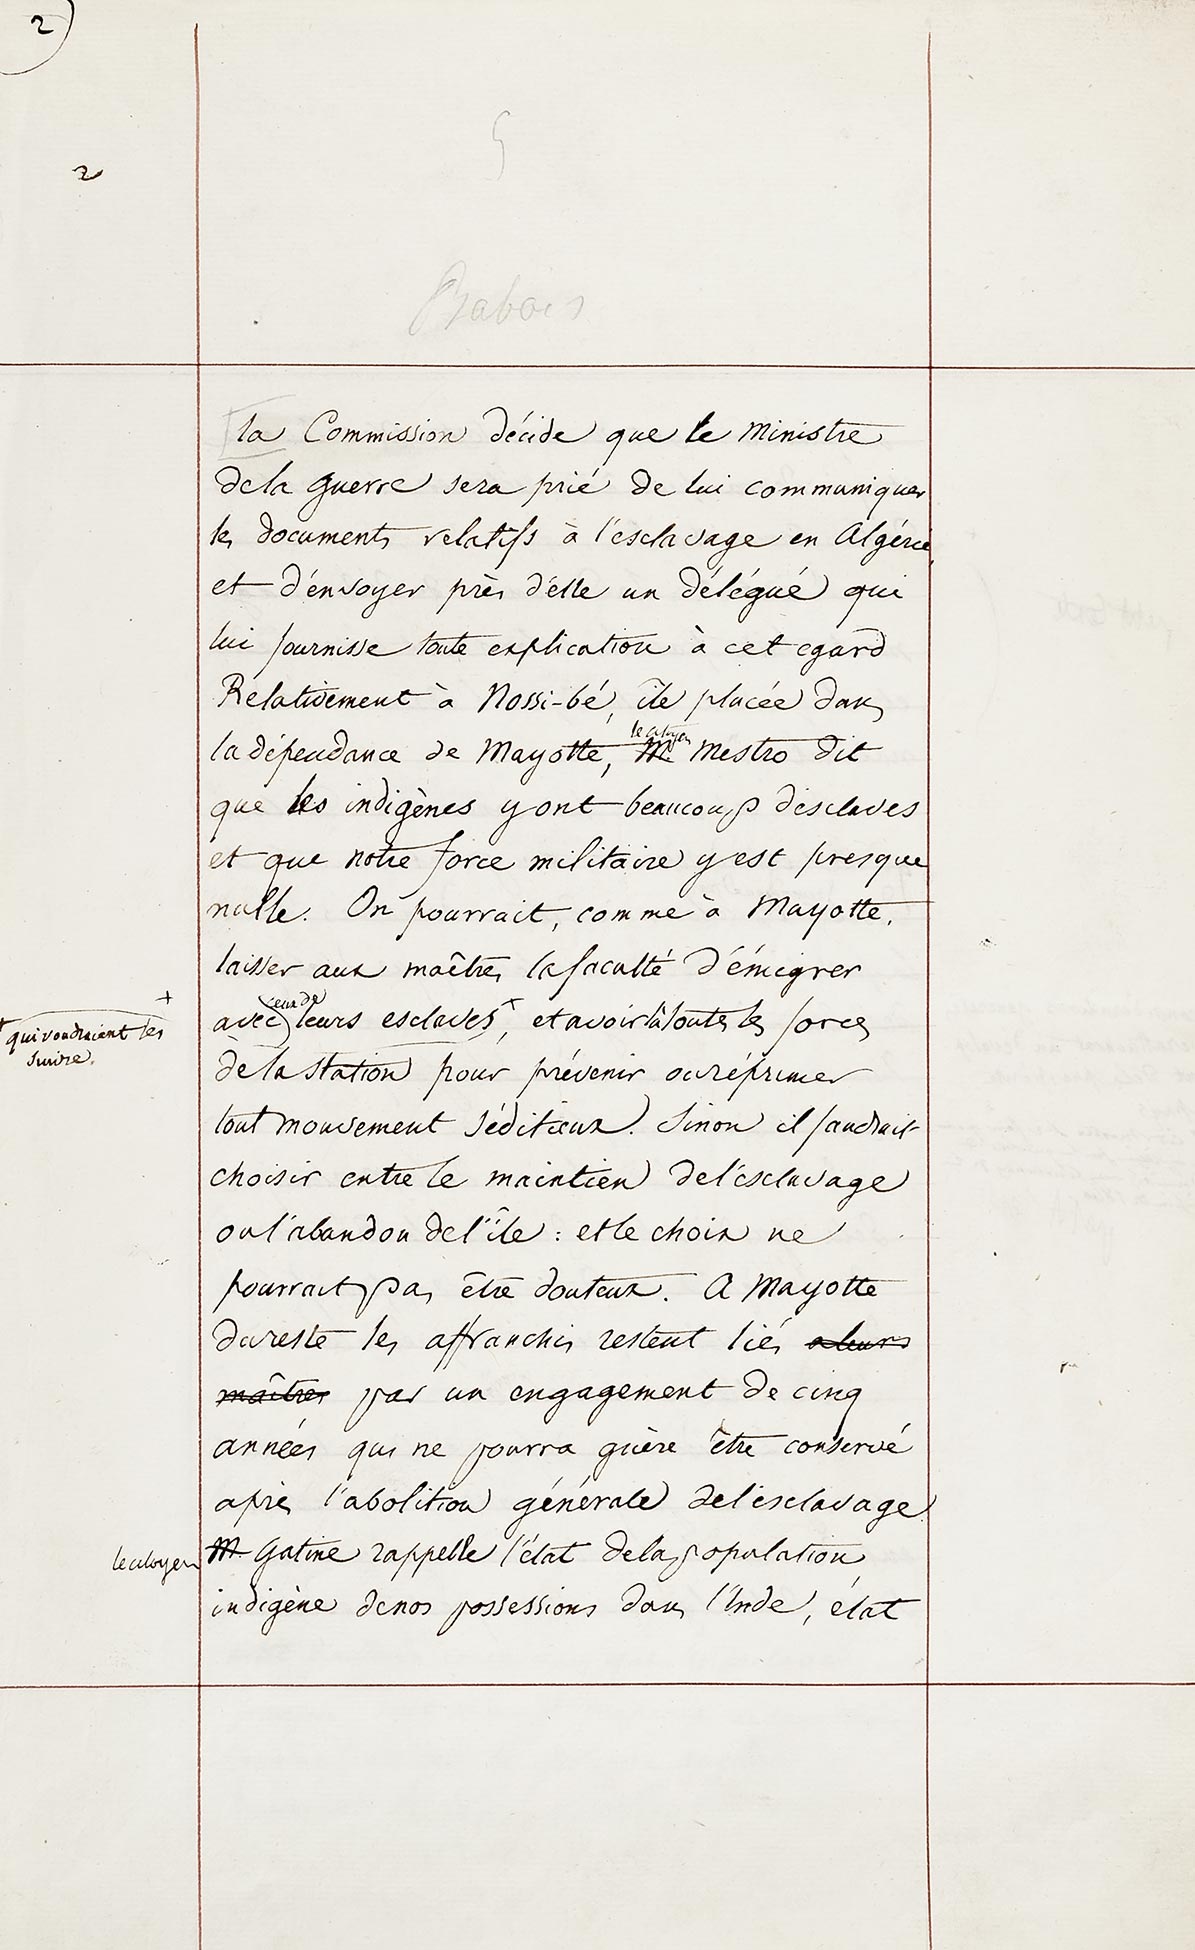 2
2
la Commission décide que le Ministre
de la guerre sera prié de lui communiquer
les documents relatifs à l'esclavage en Algérie
et d'envoyer près d'elle un délégué qui
lui fournisse toute explication à cet egard
Relativement à Nossi-bé, île placée dans
le citoyen
la dépendance de Mayotte, M. Mestro dit
que les indigènes y ont beaucoup d'esclaves
et que notre force militaire y est presque
nulle. On pourrait, comme à Mayotte,
laisser aux maîtres la faculté d'émigrer
ceux de
avec leurs esclaves +, et avoir là toutes les forces
+ qui voudraient les
suivre.
de la station pour prévenir ou réprimer
tout mouvement séditieux. Sinon il faudrait
choisir entre le maintien de l'esclavage
ou l'abandon de l'île : et le choix ne
pourrait pas être douteux. A Mayotte
du reste les affranchis restent liés a leurs
maîtres par un engagement de cinq
années qui ne pourra guère être conservé
après l'abolition générale de l'esclavage.
le citoyen M. Gatine rappelle l'état de la population
indigène de nos possessions dans l'Inde, état